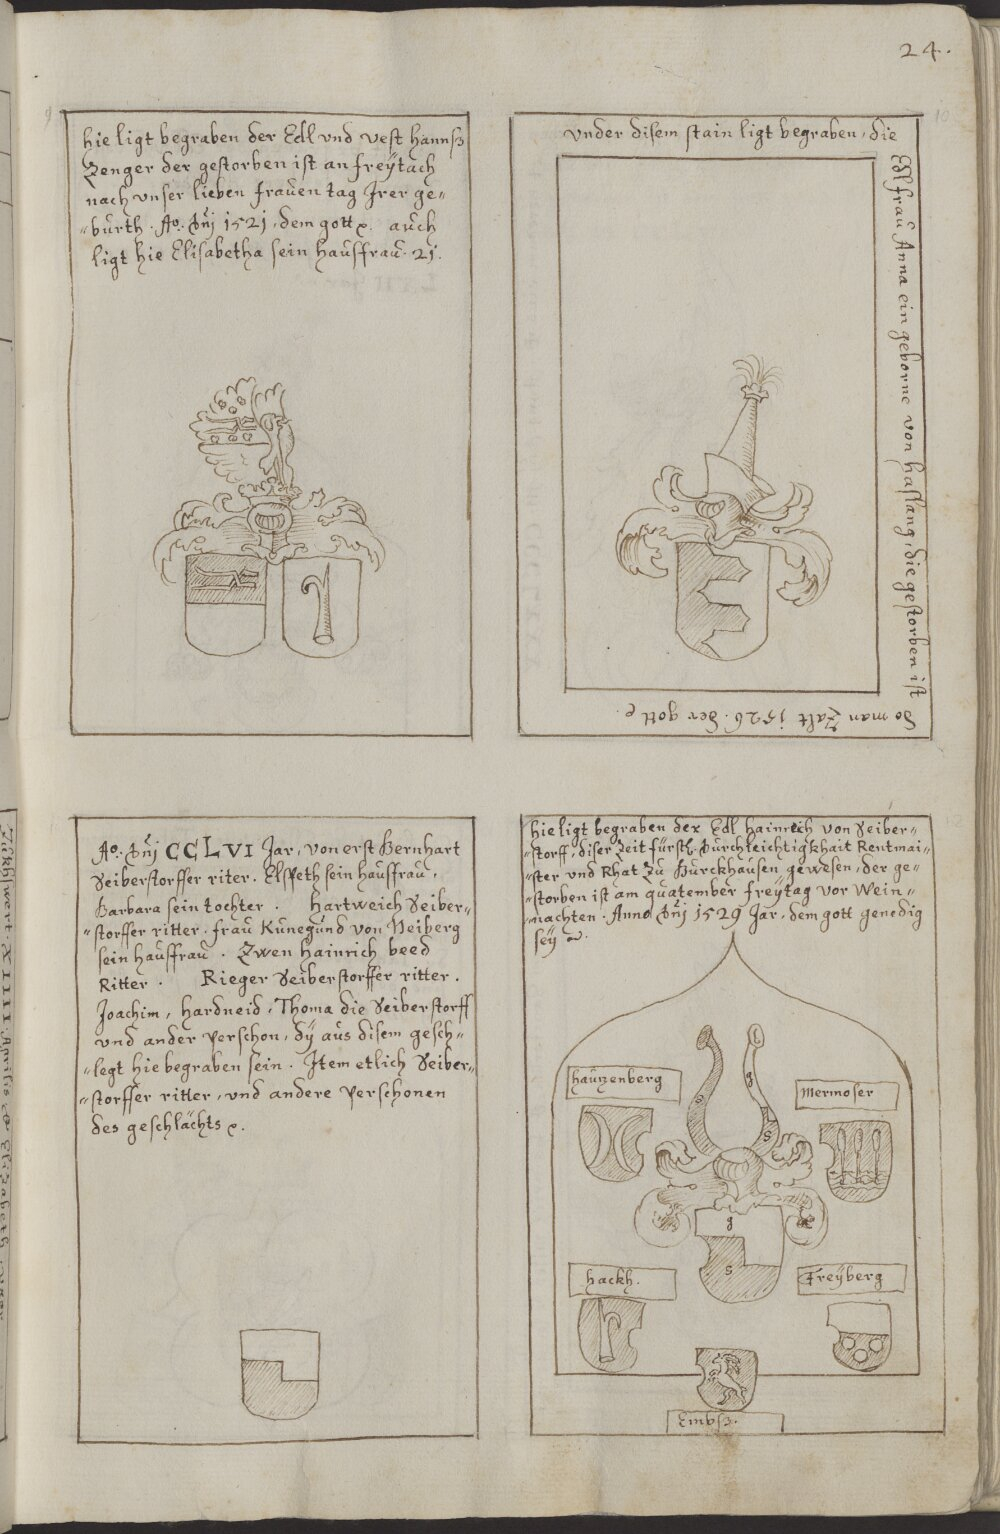 24.
hie ligt begraben der Edl vnd vest hannß
Zenger der gestorben ist an freÿtach
nach vnser lieben frauen tag Irer ge„
„burth. Ao. Dnj 1521, dem gott ꝛc. auch
ligt hie Elisabetha sein haussfrau. 21.
vnder disem stain ligt begraben, die
Edl frau Anna ein geborne von haslang, die gestorben ist
do man Zalt 1526. der gott ꝛc.
Ao. Dnj CCLVI Jar, von erst Bernhart
Seiberstorffer riter. Elspeth sein haussfrau,
Barbara sein tochter. Hartweich Seiber„
„storffer ritter. frau Kunegund von Neiberg
sein haussfrau. Zwen Hainrich beed
Ritter. Rieger Seiberstorffer ritter.
Joachim, Hardneid, Thoma die Seiberstorff
vnd ander Perschon, dÿ aus disem gesch„
„legt hie begraben sein. Item etlich Seiber„
„storffer ritter, vnd andere Perschonen
des geschlächts ꝛc.
hie ligt begraben der Edl Hainrich von Seiber„
„storff, diser Zeit fürstl. Durchleichtigkhait Rentmai„
„ster vnd Rhat Zu Burckhausen gewesen, der ge„
„storben ist am quatember freÿtag vor Wein„
„nachten. Anno Dnj 1529 Jar, dem gott genedig
seÿ ꝛc.
hauzenberg
Mermoser
g
s
s
g
s
hackh.
Freÿberg